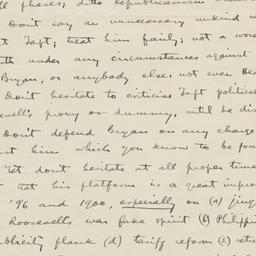 ll phases; ditto Republicanism
Don't say an unnecessary unkind w
t Taft; treat him fairly; not a wor
th under any circumstances against
Bryan, or anybody else, not even Hea
Don't hesitate to criticise Taft politica
evelt's proxy or dummy, until he dis
Don't defend Bryan on any charge
st him which you know to be four
Yet don't hesitate at all proper time
t that his platform is a great impro
'96 and 1900, especially on (a) jing
Roosevelt's war fake spirit (b) Philippi
ublicity plank (d) tariff reform (e) rete